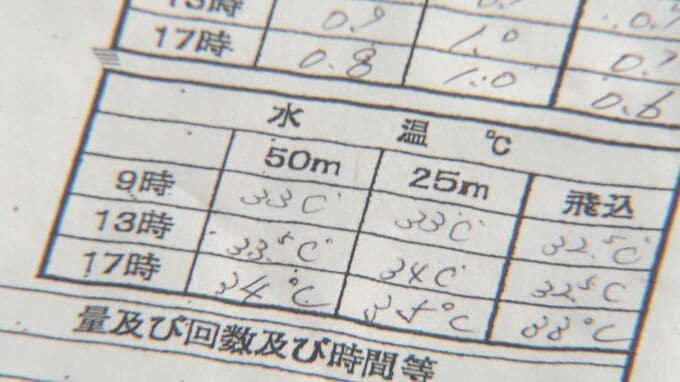 13時 0.9
17時 0.8 1.0
1.0 0.6
水 温 ℃
50m 25m 飛込
9時 33℃ 33℃ 32.5℃
13時 33.5℃ 34℃ 32.5℃
17時 34℃ 34℃ 33℃
量及び回数及び時間等